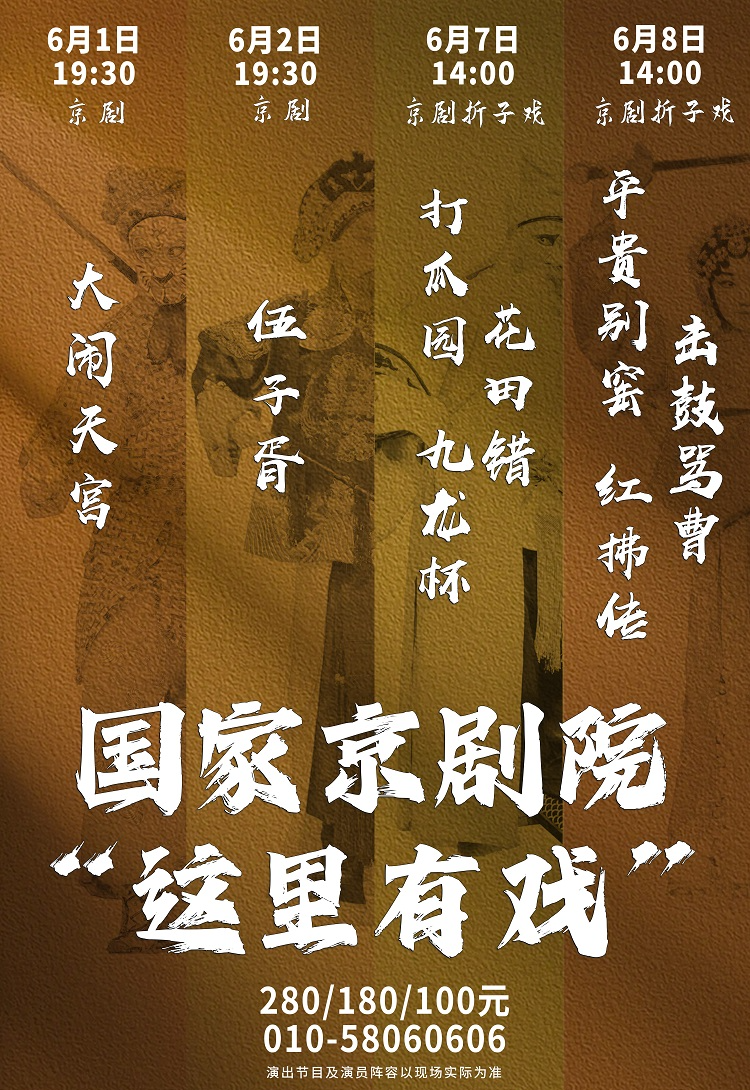 6月1日
19:30
京剧
大闹天宫
6月2日
19:30
京剧
伍子胥
6月7日
14:00
京剧折子戏
打瓜园 九龙杯
花田错
6月8日
14:00
京剧折子戏
平贵别窑 红拂传
击鼓骂曹
国家京剧院
“这里有戏”
280/180/100元
010-58060606
演出节目及演员阵容以现场实际为准